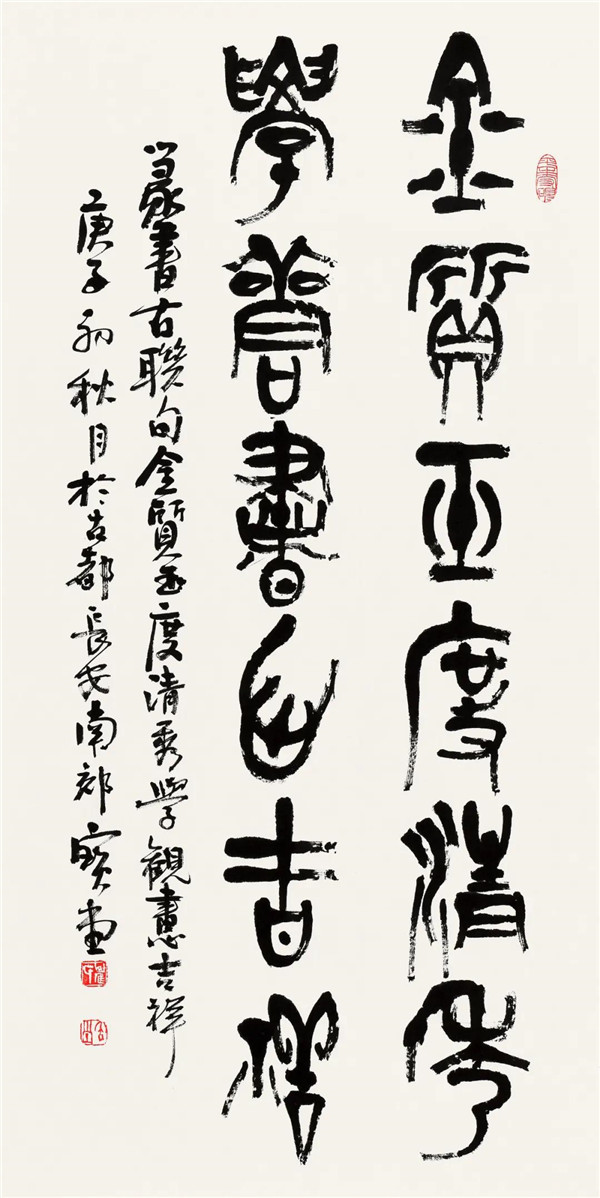 金質玉度清秀
學善書心吉祥
篆書古聯句金質玉度清秀學觀吉祥
庚子初秋月於古都長安南郊寶堂